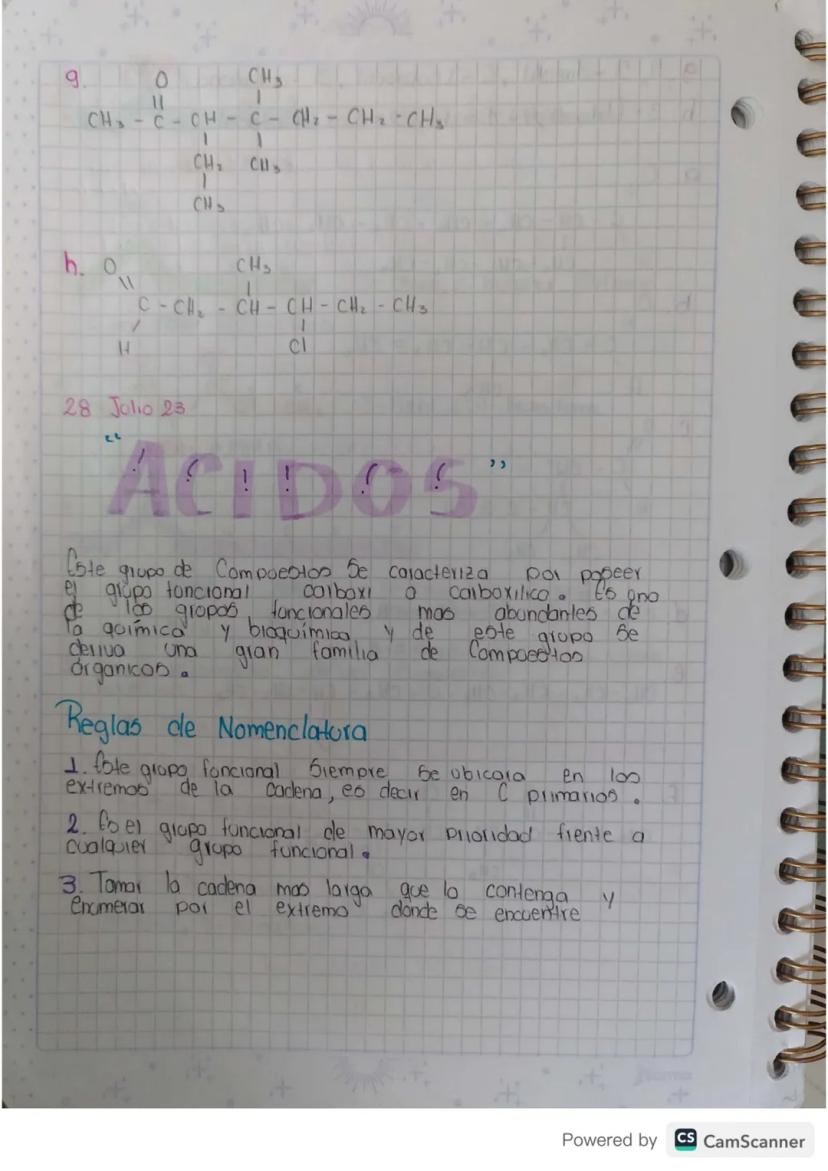 g. O CH3
||  |
CH3 - C - CH - C - CH2 - CH2 - CH3
|  |
CH2 CH3
|
CH3
h. O CH3
\\ |
C - CH2 - CH - CH - CH2 - CH3
/ |
H Cl
28 Julio 23
"ACIDOS"
Este grupo de Compuestos Se caracteriza por poseer
el grupo funcional carboxi o carboxilico. Es uno
de los grupos funcionales mas abundantes de
la química y bioquímica y de este grupo Se
deriva una gran familia de Compuestos
órganicos.
Reglas de Nomenclatura
1. Este grupo funcional Siempre Se ubicara en los
extremos de la cadena, es decir en C primarios.
2. Es el grupo funcional de mayor prioridad frente a
cualquier grupo funcional.
3. Tomar la cadena mas larga que lo contenga y
Enumerar por el extremo donde se encuentre
Powered by CS CamScanner